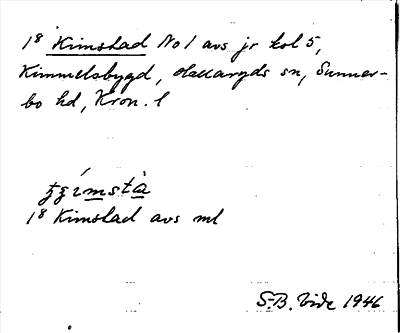 1⁸ Kimstad No 1 avs jr kol 5,
Kimmelsbygd, Hallaryds sn, Sunner-
bo hd, Kron. l
1⁸ Kimstad avs ml
S-B. Vide 1946